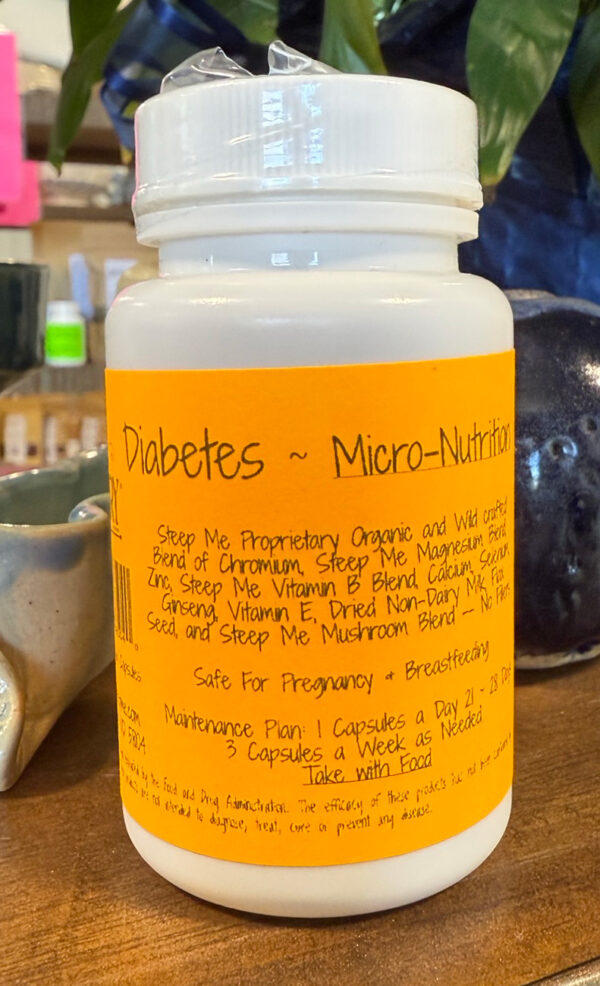 Diabetes ~ Micro-Nutrition
Steep Me Proprietary Organic and Wild crafted
Blend of Chromium, Steep Me Magnesium Blend,
Zinc, Steep Me Vitamin B Blend, Calcium, Selenium,
Ginseng, Vitamin E, Dried Non-Dairy Milk, Flax
Seed, and Steep Me Mushroom Blend — No Fillers
Safe For Pregnancy + Breastfeeding
Maintenance Plan: 1 Capsules a Day 21 - 28 Days
3 Capsules a Week as Needed
Take with Food
by the Food and Drug Administration. The efficacy of these products has not been
are not intended to diagnose, treat, cure or prevent any disease.
Capsules